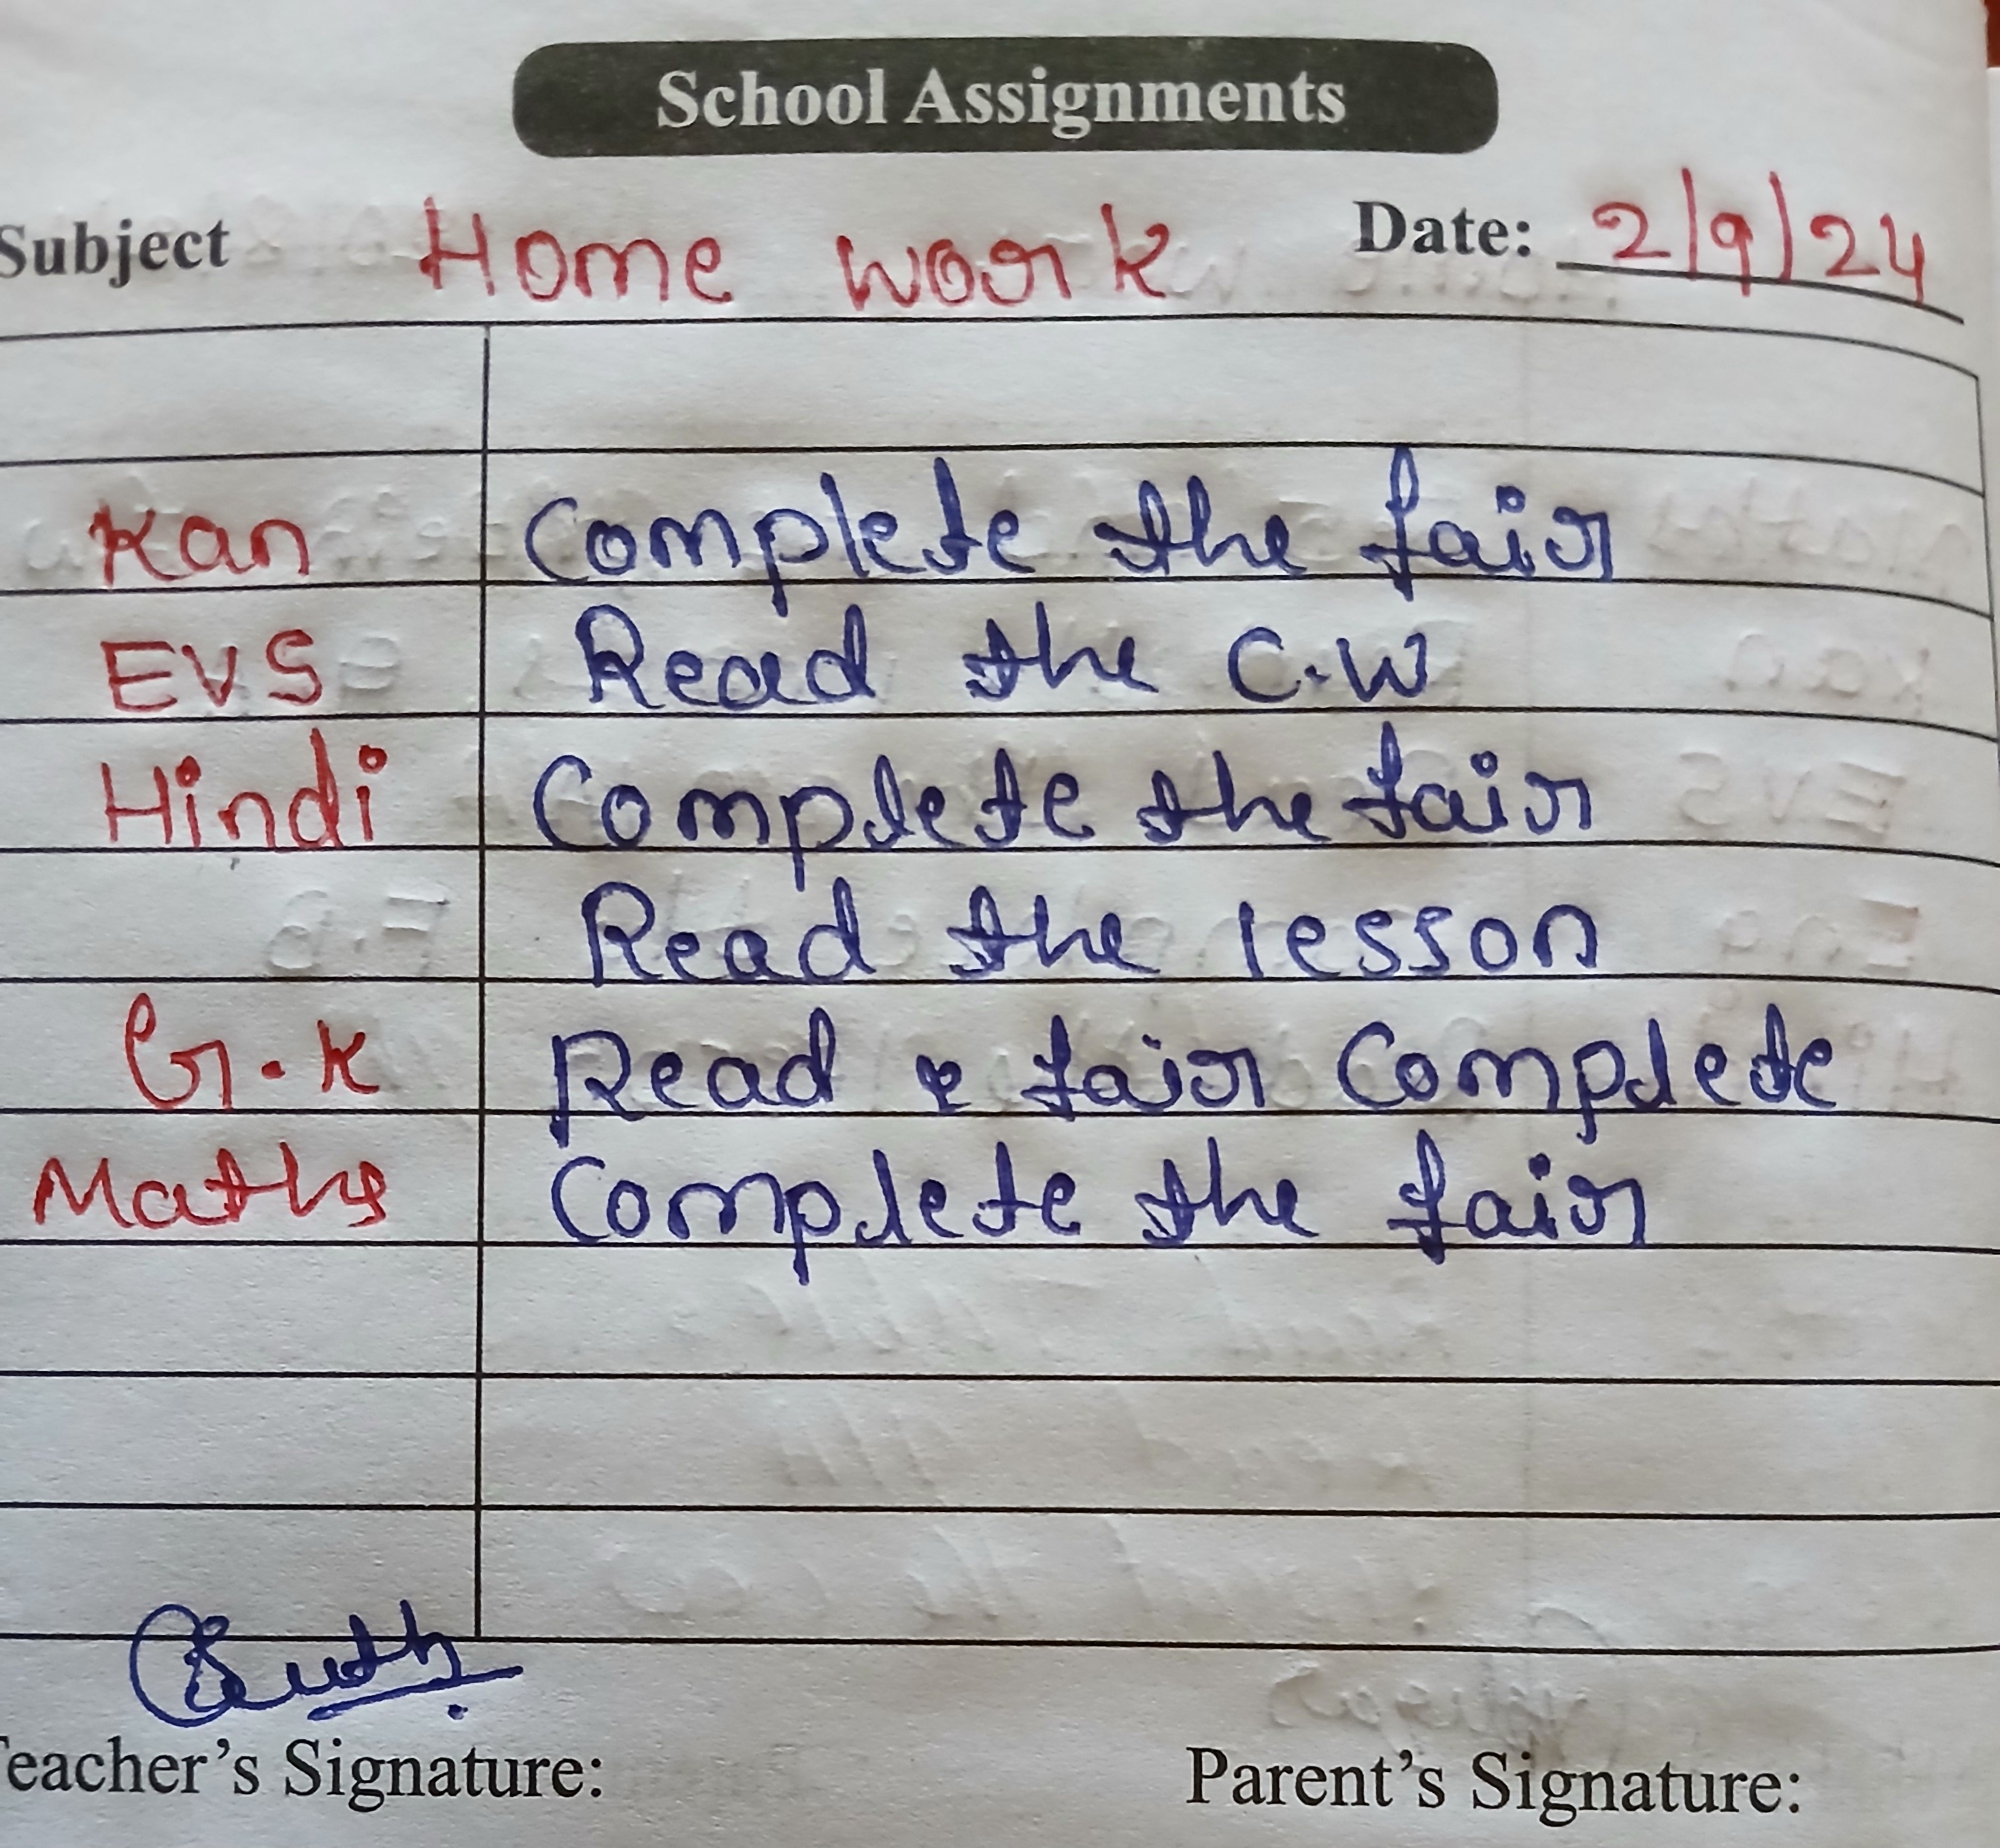 School Assignments
Subject Home work Date: 2/9/24
Kan Complete the fair
EVS Read the C.W
Hindi Complete the fair
Read the lesson
G.K Read & fair Complete
Maths Complete the fair
Teacher's Signature: Parent's Signature: